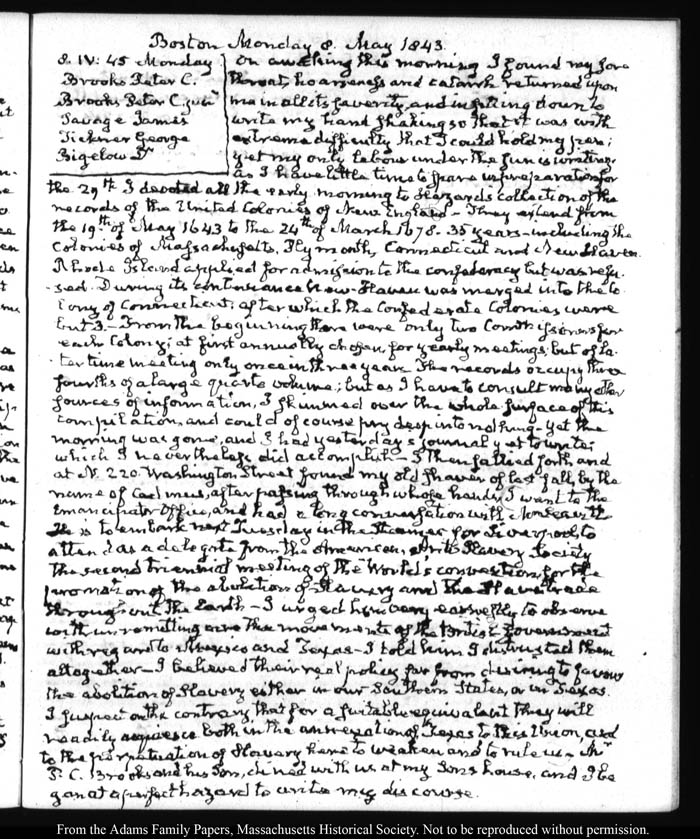 Boston Monday 8. May 1843.
8. IV: 45 Monday
Brooks Peter C.
Brooks Peter C. junr
Savage James
Ticknor George
Bigelow Dr
On awaking this morning I found my sore
throat, hoarseness and catarrh returned upon
me in all its severity, and in sitting down to
write my hand shaking so that it was with
extreme difficulty that I could hold my pen;
yet my only labour under the Sun is writing.
as I have little time to spare in preparation for
the 29th I devoted all the early morning to Hazards collection of the
records of the United Colonies of New England - They extend from
the 19th of May 1643 to the 24th of March 1678. 35 years - including the
Colonies of Massachusetts, Plymouth, Connecticut and New Haven.
Rhode Island applied for admission to the confederacy but was refu-
sed. During its continuance New-Haven was merged into the Co
lony of Connecticut, after which the Confederate Colonies were
but 3 - From the beginning there were only two Commissioners for
each Colony; at first annually chosen, for yearly meetings, but of la-
ter time meeting only once in three years. The records occupy three
fourths of a large quarto volume; but as I have to consult many other
sources of information, I skimmed over the whole surface of this
compilation, and could of course pry deep into nothing - Yet the
morning was gone, and I had yesterday's journal yet to write;
which I nevertheless did accomplish - I then sallied forth and
at N. 220. Washington Street found my old shaver of last fall, by the
name of Cadmus, after passing through whose hands, I went to the
Emancipator Office, and had a long conversation with
He is to embark next Tuesday in the Steamer for Liverpool, to
attend as a delegate from the American Anti Slavery Society
the second triennial meeting of the World's convention, for the
promotion of the abolition of Slavery and the Slave trade
throughout the Earth - I urged him very earnestly to observe
with unremitting care the movements of the British Government
with regard to Mexico and Texas - I told him I distrusted them
altogether - I believed their real policy far from desiring to favour
the abolition of Slavery either in our Southern States, or in Texas.
I suspect on the contrary, that for a suitable equivalent they will
readily acquiesce both in the annexation of Texas to this Union, and
to the perpetuation of Slavery here to weaken and to rule us - Mr
P. C. Brooks and his Son, dined with us at my Sons house, and I be
gan at a perfect hazard to write my discourse.
From the Adams Family Papers, Massachusetts Historical Society. Not to be reproduced without permission.